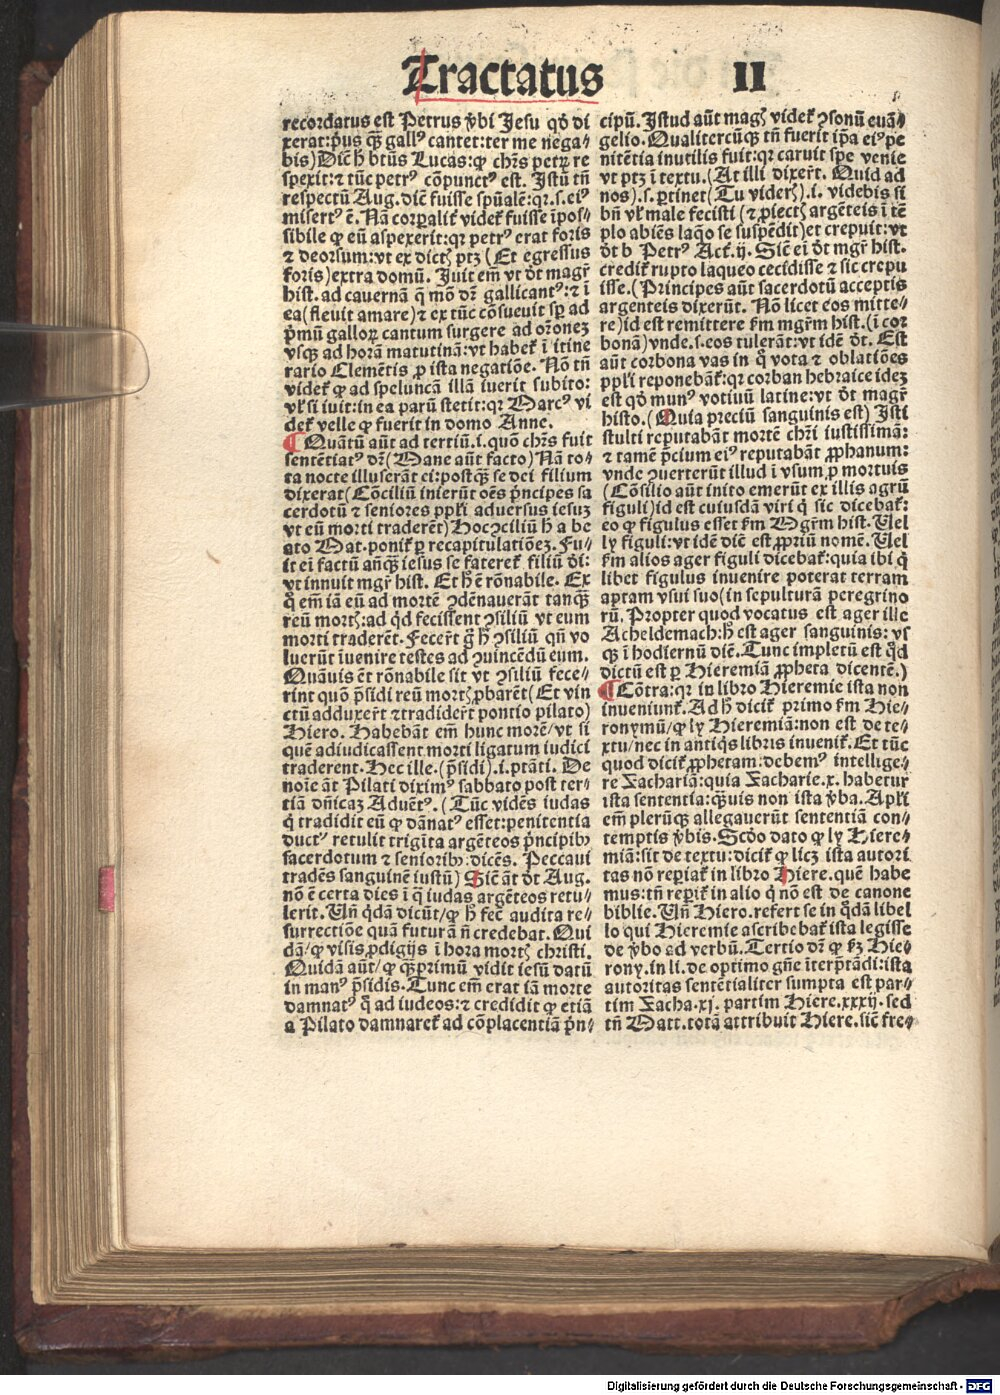 Tractatus II
recordatus est Petrus v̾bi Jesu qd̓ di
xerat:p̓us qꝫ̄ gallꝰ cantet:ter me nega⸗
bis)Dicit̄ h̄ btūs Lucas:ꝙ chr̄s petrū re
spexit:⁊ tūc petrꝰ cōpunctꝰ est. Istū tn̄
respectū Aug. dic̄ fuisse spūalē:qꝛ.s.eiꝰ
misertꝰ ē. Nā corꝑalit̓ videt̓ fuisse īpos⸗
sibile ꝙ eū aspexerit:qꝛ petrꝰ erat foris
⁊ deorsum:vt ex dictꝭ ptꝫ (Et egressus
foris)extra domū. Iuit em̄ vt dt̄ magr̄
hist. ad cauernā q̄ mō dr̄ gallicantꝰ:⁊ ī
ea(fleuit amare)⁊ ex tūc cōsueuit sp̄ ad
p̓mū galloꝝ cantum surgere ad or̄onez
vsqꝫ ad horā matutinā:vt habet̓ ī itine
rario Clemētis ꝓ ista negatiōe. Nō tn̄
videt̓ ꝙ ad speluncā illā iuerit subito:
vl̓ si iuit:in ea parū stetit:qꝛ Marcꝰ vi
det̓ velle ꝙ fuerit in domo Anne.
¶ Quātū aūt ad tertiū.i.quō chr̄s fuit
sentētiatꝰ dr̄(Mane aūt facto)Nā to⸗
ta nocte illuserāt ei:postqꝫ̄ se dei filium
dixerat(Cōciliū inierūt oēs p̓ncipes sa
cerdotū ⁊ seniores ppl̓i aduersus iesuz
vt eū morti traderēt)Hoc ꝯciliū h̄ a be
ato Mat.ponit̓ ꝑ recapitulatiōez. Fu⸗
it ei factū anq̄ꝫ iesus se fateret̓ filiū di̓:
vt innuit mgr̄ hist. Et h̓ ē rōnabile. Ex
q̊ em̄ iā eū ad mortē ꝯdēnauerāt tanqꝫ̄
reū mortꝭ:ad qd̓ fecissent ꝯsiliū vt eum
morti traderēt. Fecer̄t g̊ h̓ ꝯsiliū qn̄ vo
luerūt īuenire testes ad ꝯuincēdū eum.
Quāuis et rōnabile sit vt ꝯsiliū fece⸗
rint quō p̄sidi reū mortꝭ ꝓbarēt(Et vin
ctū adduxer̄t ⁊tradider̄t pontio pilato)
Hiero. Habebāt em̄ hunc morē/vt si
quē adiudicassent morti ligatum iudici
traderent. Hec ille.(p̄sidi).i.ptāti. De
noīe āt Pilati diximꝰ sabbato post ter⸗
tiā dn̄icaz Aduētꝰ. (Tūc vidēs iudas
q̓ tradidit eū ꝙ dānatꝰ esset:penitentia
ductꝰ retulit trigīta argēteos p̓ncipibꝰ
sacerdotum ⁊ senioribꝰ:dicēs. Peccaui
tradēs sanguinē iustū) Sic̄ āt dt̄ Aug.
nō ē certa dies ī q̄ iudas argēteos retu⸗
lerit. Vn̄ q̓dā dicūt/ꝙ h̓ fec̄ audita re⸗
surrectiōe quā futurā n̄ credebat. Qui
dā/ꝙ visis ꝓdigijs ī hora mortꝭ christi.
Quidā aūt/ꝙ qꝫ̄primū vidit iesū datū
in manꝰ p̄sidis. Tunc em̄ erat iā morte
damnatꝰ q̊ ad iudeos:⁊ credidit ꝙ etiā
a Pilato damnaret̓ ad cōplacentiā p̓n⸗
cipū. Istud aūt magꝭ videt̓ ꝯsonū euā⸗
gelio. Qualitercūqꝫ tn̄ fuerit ip̄a eiꝰ pe
nitētia inutilis fuit:qꝛ caruit spe venie
vt ptꝫ ī textu.(At illi dixer̄t. Quid ad
nos).s.ꝑtinet(Tu viderꝭ).i. videbis si
bn̄ vl̓ male fecisti (⁊ ꝓiectꝭ argēteis ī tē
plo abiēs laq̊o se suspēdit)et crepuit:vt
dt̄ b Petrꝰ Act̓.ij. Sic̄ ei̓ dt̄ mgr̄ hist.
credit̓ rupto laqueo cecidisse ⁊ sic crepu
isse.(Principes aūt sacerdotū acceptis
argenteis dixerūt. Nō licet eos mitte⸗
re)id est remittere ẜm mgr̄m hist.(ī cor
bonā)vnde.s.eos tulerāt:vt idē dt̄. Est
aūt corbona vas in q̊ vota ⁊ oblatiōes
ppl̓i reponebāt̓:qꝛ corban hebraice idez
est qd̓ munꝰ votiuū latine:vt dt̄ magr̄
histo.(Quia preciū sanguinis est) Isti
stulti reputabāt mortē chr̄i iustissimā:
⁊ tamē p̄cium eiꝰ reputabāt ꝓphanum:
vnde ꝯuerterūt illud ī vsum ꝑ mortuis
(Cōsilio aūt inito emerūt ex illis agrū
figuli)id est cuiusdā viri q̓ sic dicebat̓:
eo ꝙ figulus esset ẜm Mgr̄m hist. Vel
ly figuli:vt idē dic̄ est ꝓpriū nomē. Vel
ẜm alios ager figuli dicebat̓:quia ibi q̓
libet figulus inuenire poterat terram
aptam vsui suo(in sepulturā peregrino
rū. Propter quod vocatus est ager ille
Acheldemach:h̓ est ager sanguinis:vs
qꝫ ī hodiernū diē. Tunc impletū est qd̓
dictū est ꝑ Hieremiā ꝓpheta dicentē.)
¶ Cōtra:qꝛ in libro Hieremie ista non
inueniunt̓. Ad h̓ dicit̓ primo ẜm Hie⸗
ronymū/ꝙ ly Hieremiā:non est de te⸗
xtu/nec in antiq̓s libris inuenit̓. Et tūc
quod dicit̓ ꝓphetam:debemꝰ intellige⸗
re Zachariā:quia Zacharie.x. habetur
ista sententia:qꝫ̄uis non ista v̾ba. Apl̓i
em̄ plerūqꝫ allegauerūt sententiā con⸗
temptis v̾bis. Scd̓o dato ꝙ ly Hiere⸗
miā:sit de textu:dicit̓ ꝙ licꝫ ista autori
tas nō reꝑiat̓ in libro Hiere.quē habe
mus:tn̄ reꝑit̓ in alio q̓ nō est de canone
biblie. Vn̄ Hiero.refert se in q̊dā libel
lo qui Hieremie ascribebat̓ ista legisse
de v̾bo ad verbū. Tertio dr̄ ꝙ ẜꝫ Hie⸗
rony.in li.de optimo gn̄e īterp̄tādi:ista
autoritas sentētialiter sumpta est par⸗
tim Zacha.xj. partim Hiere.xxxij. sed
tn̄ Matt.totā attribuit Hiere.sic̄ fre⸗
Digitalisierung gefördert durch die Deutsche Forschungsgemeinschaft - DFG